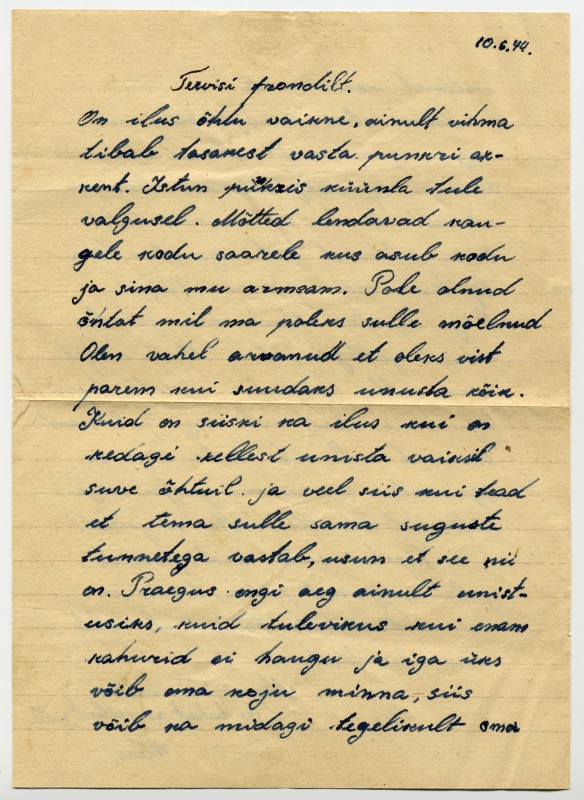 10.6.44.
Tervisi frondilt.
On ilus õhtu vaikne, ainult vihma
tibab tasakest vasta punkri ak-
kent. Istun punkris küünla tule
valgusel. Mõtted lendavad kau-
gele kodu saarele kus asub kodu
ja sina mu armsam. Pole olnud
õhtat mil ma poleks sulle mõelnud
Olen vahel arvanud et oleks vist
parem kui suudaks unusta kõik.
Kuid on siiski ka ilus kui on
kedagi kellest unista vaiksil
suve õhtuil ja veel siis kui tead
et tema sulle sama suguste
tunnetega vastab, usun et see nii
on. Praegus ongi aeg ainult unist-
usiks, kuid tulevikus kui enam
kahurid ei haugu ja iga üks
võib oma koju minna, siis
võib ka midagi tegelikult oma